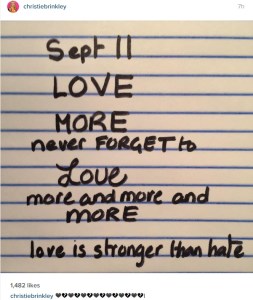 christiebrinkley
7h
Sept 11
LOVE
MORE
never FORGET to
Love
more and more and
MORE
love is stronger than hate
1,482 likes
christiebrinkley